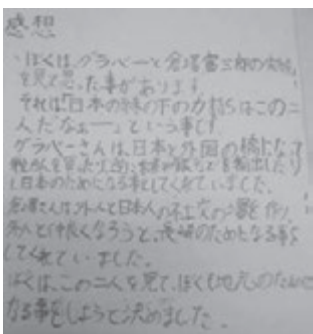 感想
ぼくは、グラバーと倉場富三郎の
を見て思った事があります
それは「日本の縁の下の力持ちはこの二
人だなぁー」という事です
グラバーさんは、日本と外国の橋になって
を輸出したり
し日本のためになる事をしてくれていました。
倉場さんは外人と日本人の 作り、
外人と仲良くなろうと、長崎のためになる事を
してくれていました。
ぼくは、この二人を見て、ぼくも地元のために
なる事をしようと決めました。